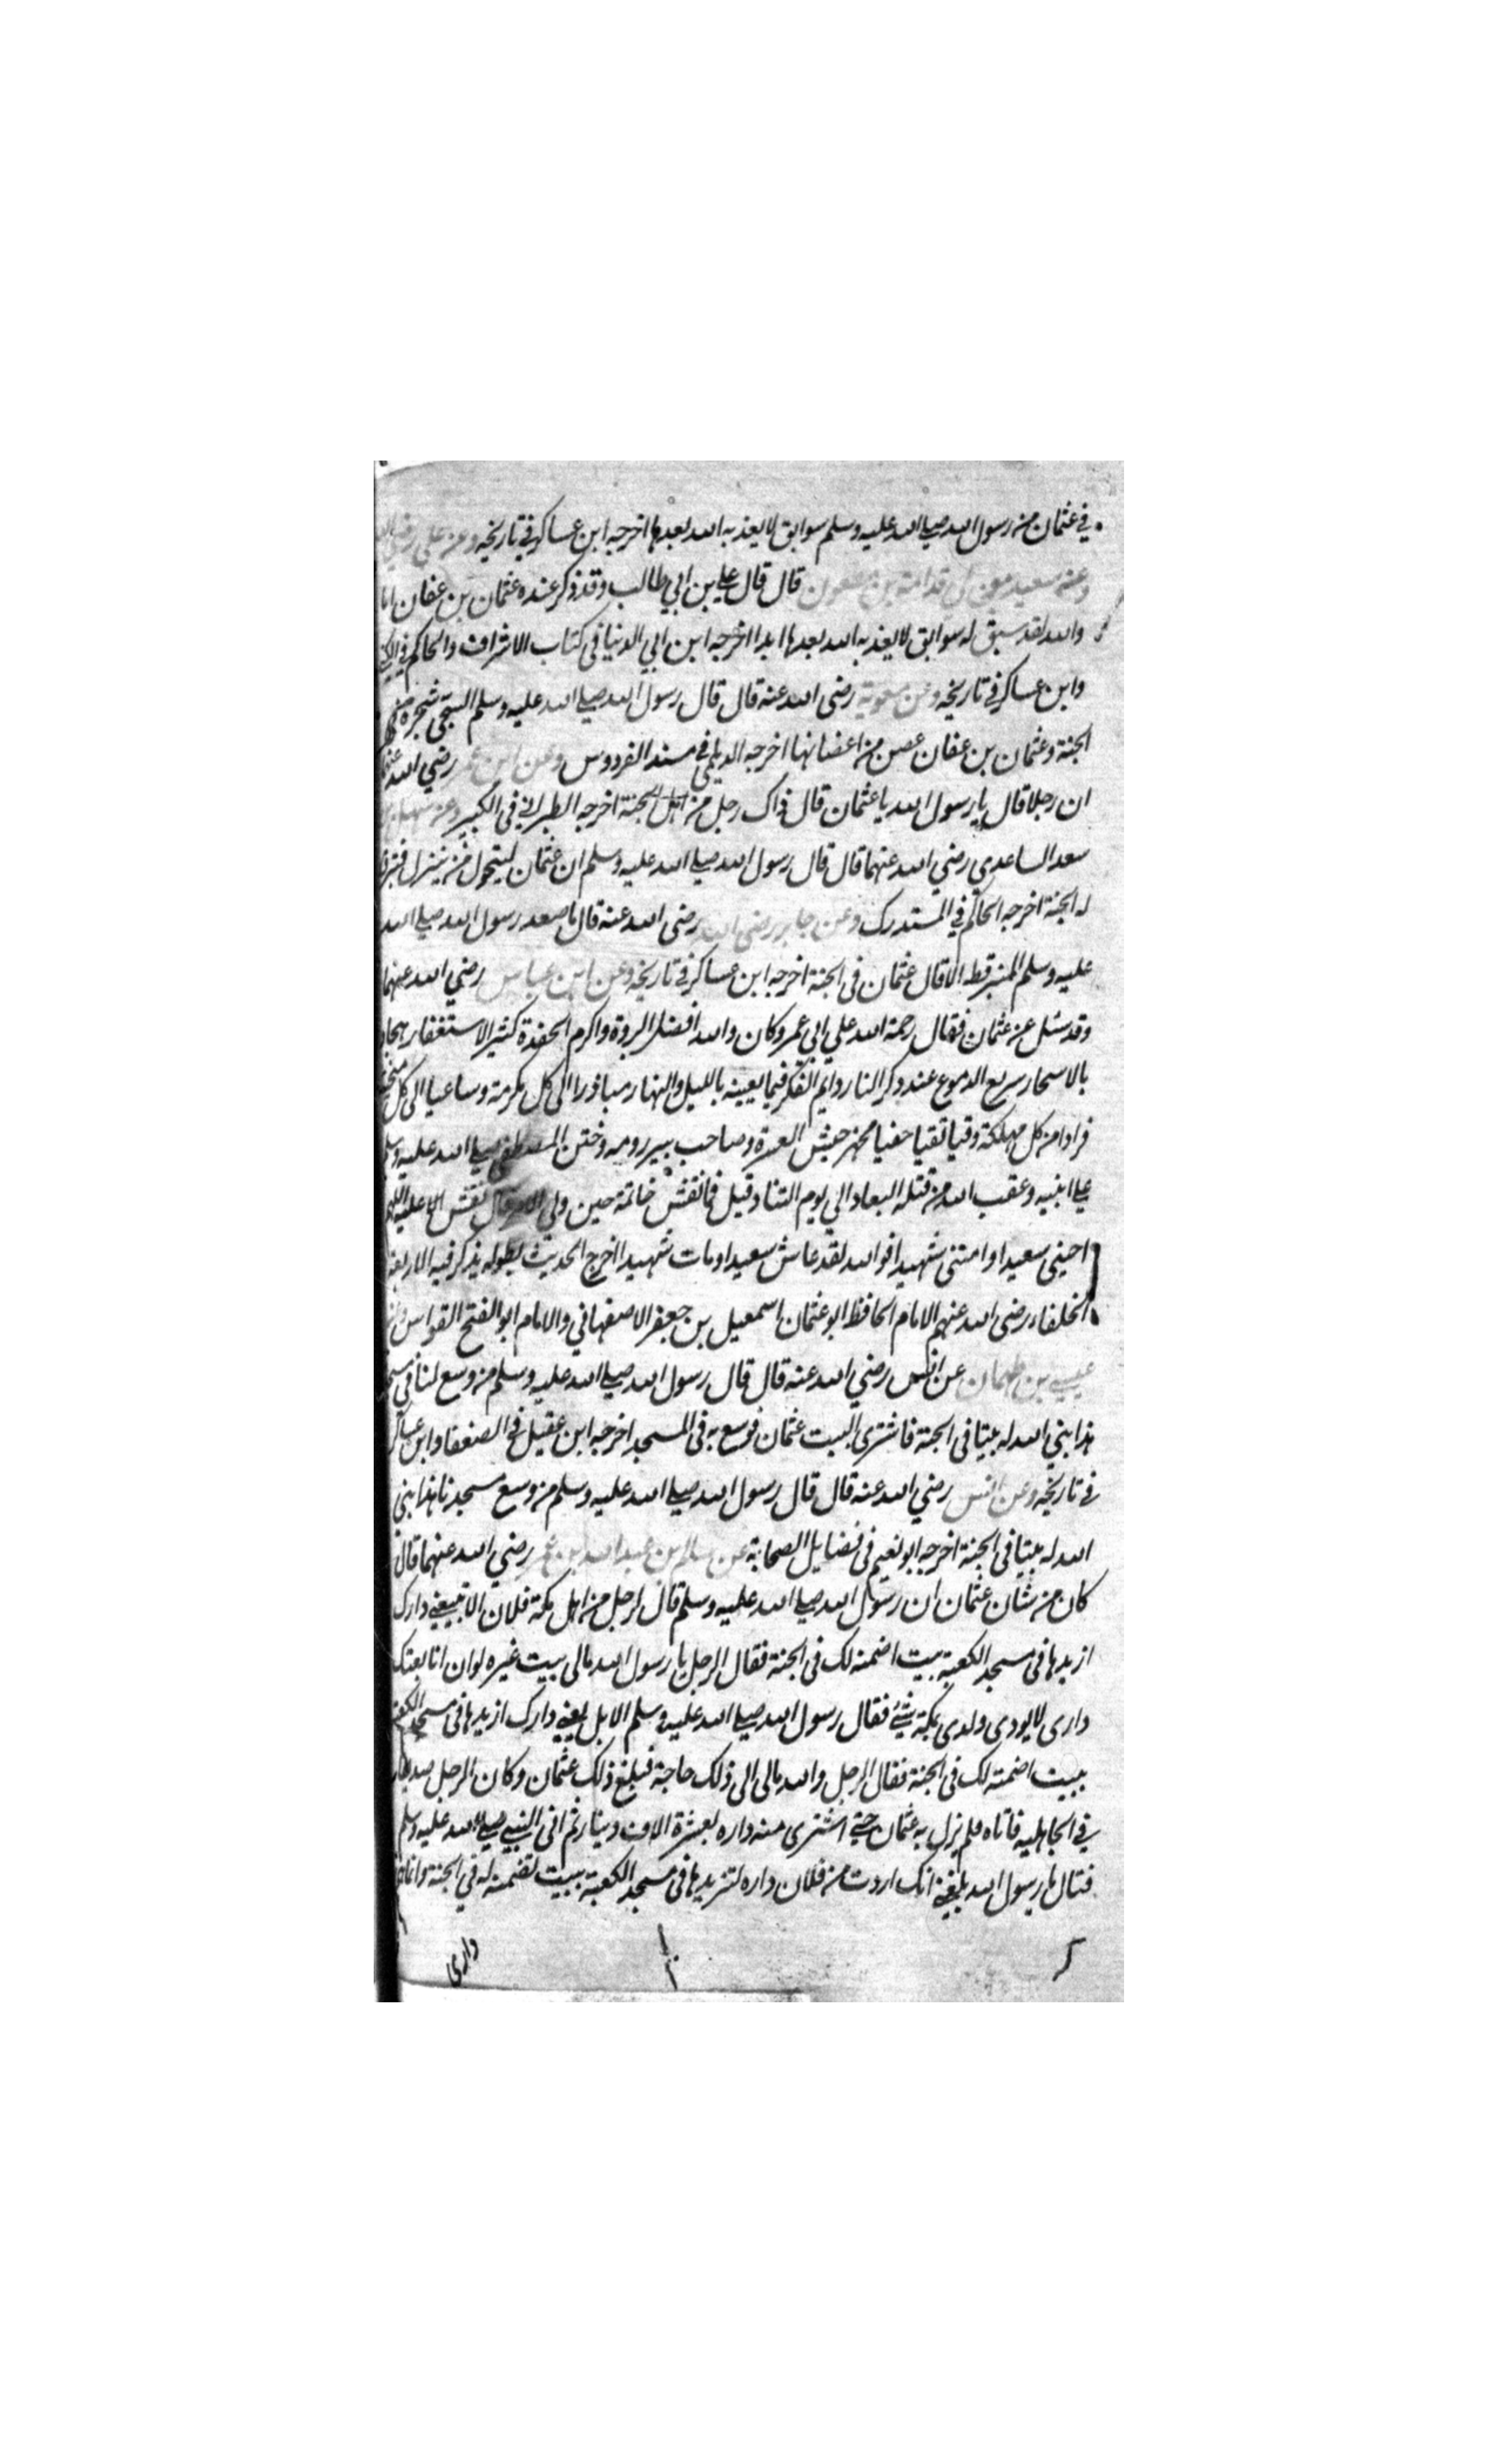 في عثمان من رسول الله صلى الله عليه وسلم سوابق لا يعذبه الله بعدها اخرجه ابن عساكر في تاريخه وعن علي رضي الله
وعنه سعيد قدامة بن مظعون قال قال علي بن ابي طالب وقد ذكر عنده عثمان بن عفان اما
والله لقد سبق له سوابق لا يعذبه الله بعدها ابدا اخرجه ابن ابي الدنيا في كتاب الاشراف والحاكم في الكنى
وابن عساكر في تاريخه وعن معوية رضى الله عنه قال قال رسول الله صلى الله عليه وسلم شجرة من
الجنة وعثمان بن عفان عصن من اعضانها اخرجه الديلمي في مسند الفردوس وعن ابن عمر رضي الله عنهما
ان رجلا قال يا رسول الله يا عثمان قال ذاك رجل من اهل الجنة اخرجه الطبراني في الكبير وعن سهل بن
سعد الساعدي رضي الله عنهما قال قال رسول الله صلى الله عليه وسلم ان عثمان ليتحول من منزل فتبرق
له الجنة اخرجه الحاكم في المستدرك وعن جابر رضى الله رضى الله عنه قال ما صعد رسول الله صلى الله
عليه وسلم المنبر قط الا قال عثمان في الجنة اخرجه ابن عساكر في تاريخه وعن ابن عباس رضي الله عنهما
وقد سئل عن عثمان فقال رحمة الله علي ابي عمر وكان والله افضل البررة واكرم الحفدة كثير الاستغفار هجاد
بالاسحار سريع الدموع عند ذكر النار دايم الفكر فيما يعينه بالليل والنهار مباذرا الى كل مكرمة وساعيا الى كل منجية
فرادا من كل مهلكة وقيا نقيا حفيا مجهز جيش العسرة وصاحب بير رومه وختن المصطفى صلى الله عليه وسلم
علي ابنيه وعقب الله من قتله البعاد الي يوم التناد قيل فما نقش خاتمه حين ولى الامر قال نقش عليه اللهم
احيني سعيدا وامتنى شهيدا فوالله لقد عاش سعيدا ومات شهيدا اخرج الحديث بطوله يذكر فيه الاربعة
الخلفاء رضى الله عنهم الامام الحافظ ابو عثمان اسمعيل بن جعفر الاصفهاني والامام ابو الفتح القواس عن
عيسى بن طهمان عن انس رضي الله عنه قال قال رسول الله صلى الله عليه وسلم من وسع لنا في مسجدنا
هذا بني الله له بيتا في الجنة فاشترى البيت عثمان فوسع به في المسجد اخرجه ابن عقيل في الضعفا وابن عساكر
في تاريخه وعن انس رضي الله عنه قال قال رسول الله صلى الله عليه وسلم من وسع مسجدنا هذا بنى
الله له بيتا في الجنة اخرجه ابو نعيم في فضايل الصحابة عن سالم بن عبد الله بن عمر رضي الله عنهما قال
كان من شان عثمان ان رسول الله صلى الله عليه وسلم قال لرجل من اهل مكة فلان الا تبيعني دارك
ازيدها في مسجد الكعبة بيت اضمنه لك في الجنة فقال الرجل يا رسول الله مالى بيت غيره لو ان انا بعتك
دارى لا يودى ولدى بمكة شئ فقال رسول الله صلى الله عليه وسلم الا بل بعني دارك ازيدها في مسجد الكعبة
ببيت اضمنه لك في الجنة فقال الرجل والله مالى الى ذلك حاجة فبلغ ذلك عثمان وكان الرجل صديقا
في الجاهليه فاتاه فلم يزل به عثمان حتى اشترى منه داره بعشرة الاف دينار ثم اتى النبي صلى الله عليه وسلم
فقال يا رسول الله بلغني انك اردت من فلان داره لتزيدها في مسجد الكعبة ببيت تضمنه له في الجنة وانما
دارى